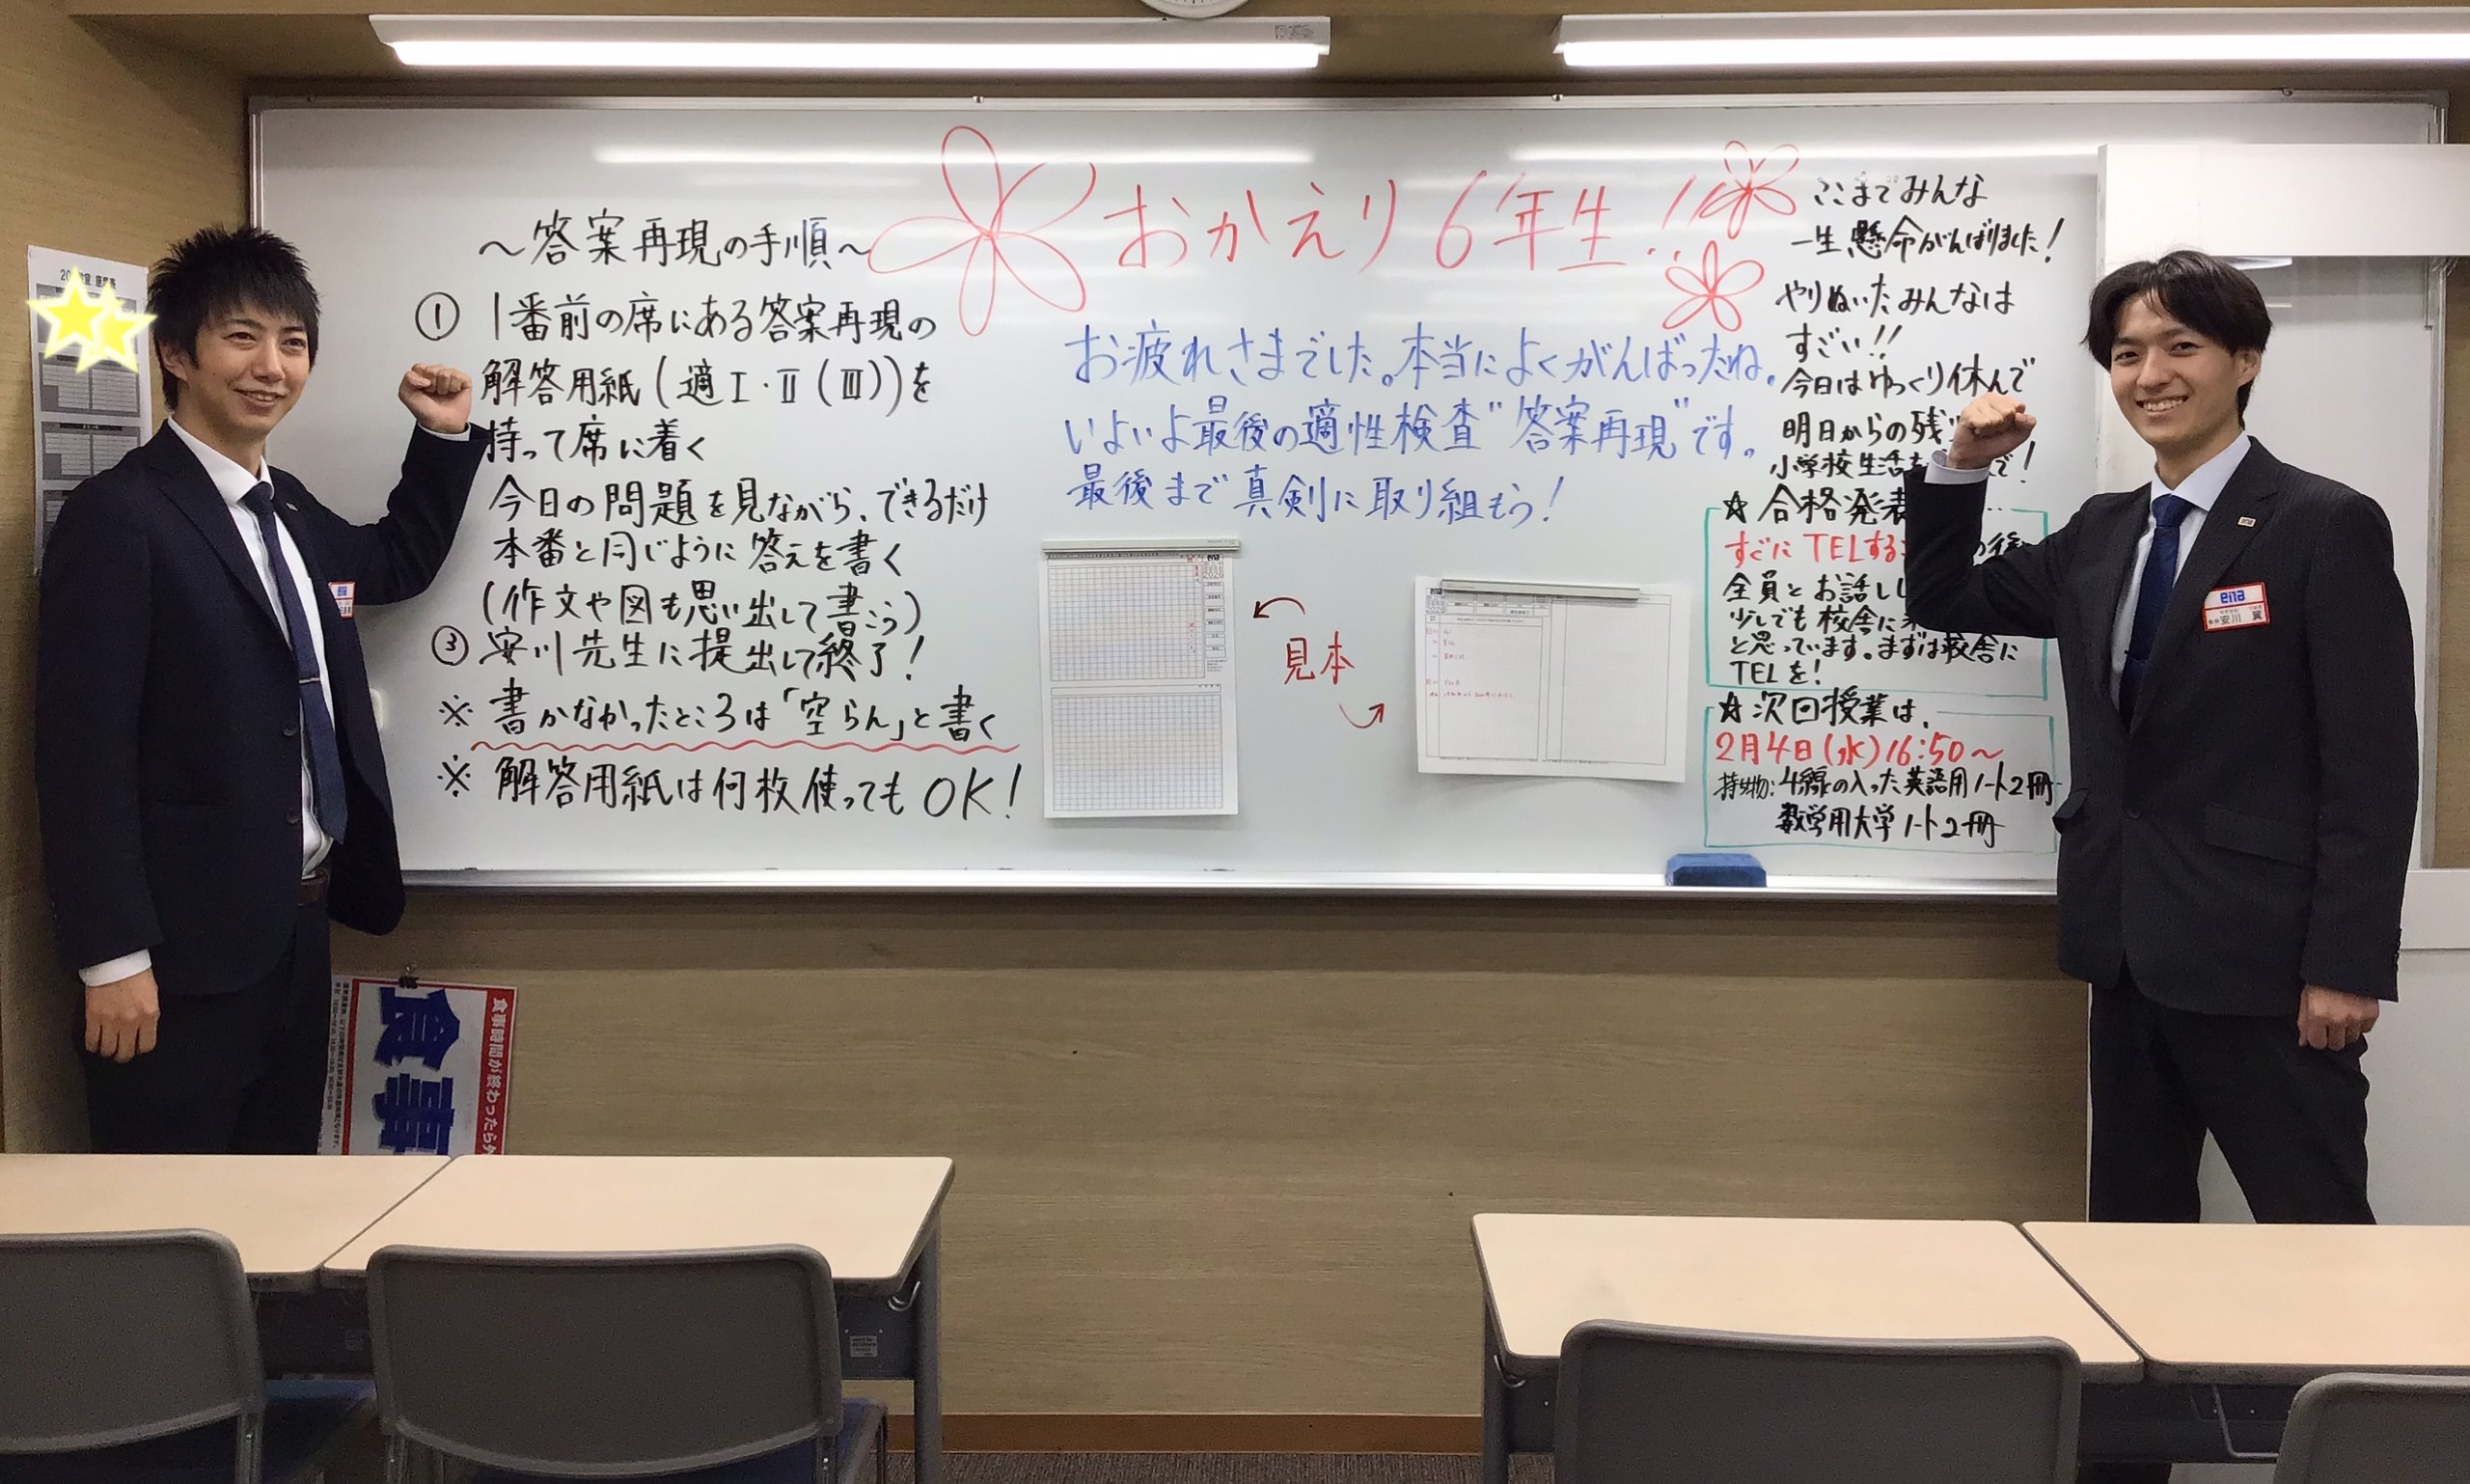 ～答案再現の手順～
① 1番前の席にある答案再現の
解答用紙(適Ⅰ・Ⅱ(Ⅲ))を
持って席に着く
今日の問題を見ながら、できるだけ
本番と同じように答えを書く
(作文や図も思い出して書こう)
③ 安川先生に提出して終了!
※ 書かなかったところは「空らん」と書く
※ 解答用紙は何枚使ってもOK!
おかえり6年生!!
お疲れさまでした。本当によくがんばったね。
いよいよ最後の適性検査"答案再現"です。
最後まで真剣に取り組もう!
見本
ena
ここまでみんな
一生懸命がんばりました!
やりぬいたみんなは
すごい!!
今日はゆっくり休んで
明日からの残
小学校生活を
で!
☆合格発表
すぐにTELする
の後
全員とお話し
少しでも校舎に
と思っています。まずは校舎に
TELを!
☆次回授業は、
2月4日(水)16:50～
持ち物:4線の入った英語用ノート2冊
数学用大学ノート2冊
ena
ena
安川 翼
食事時間が終わったら
食事